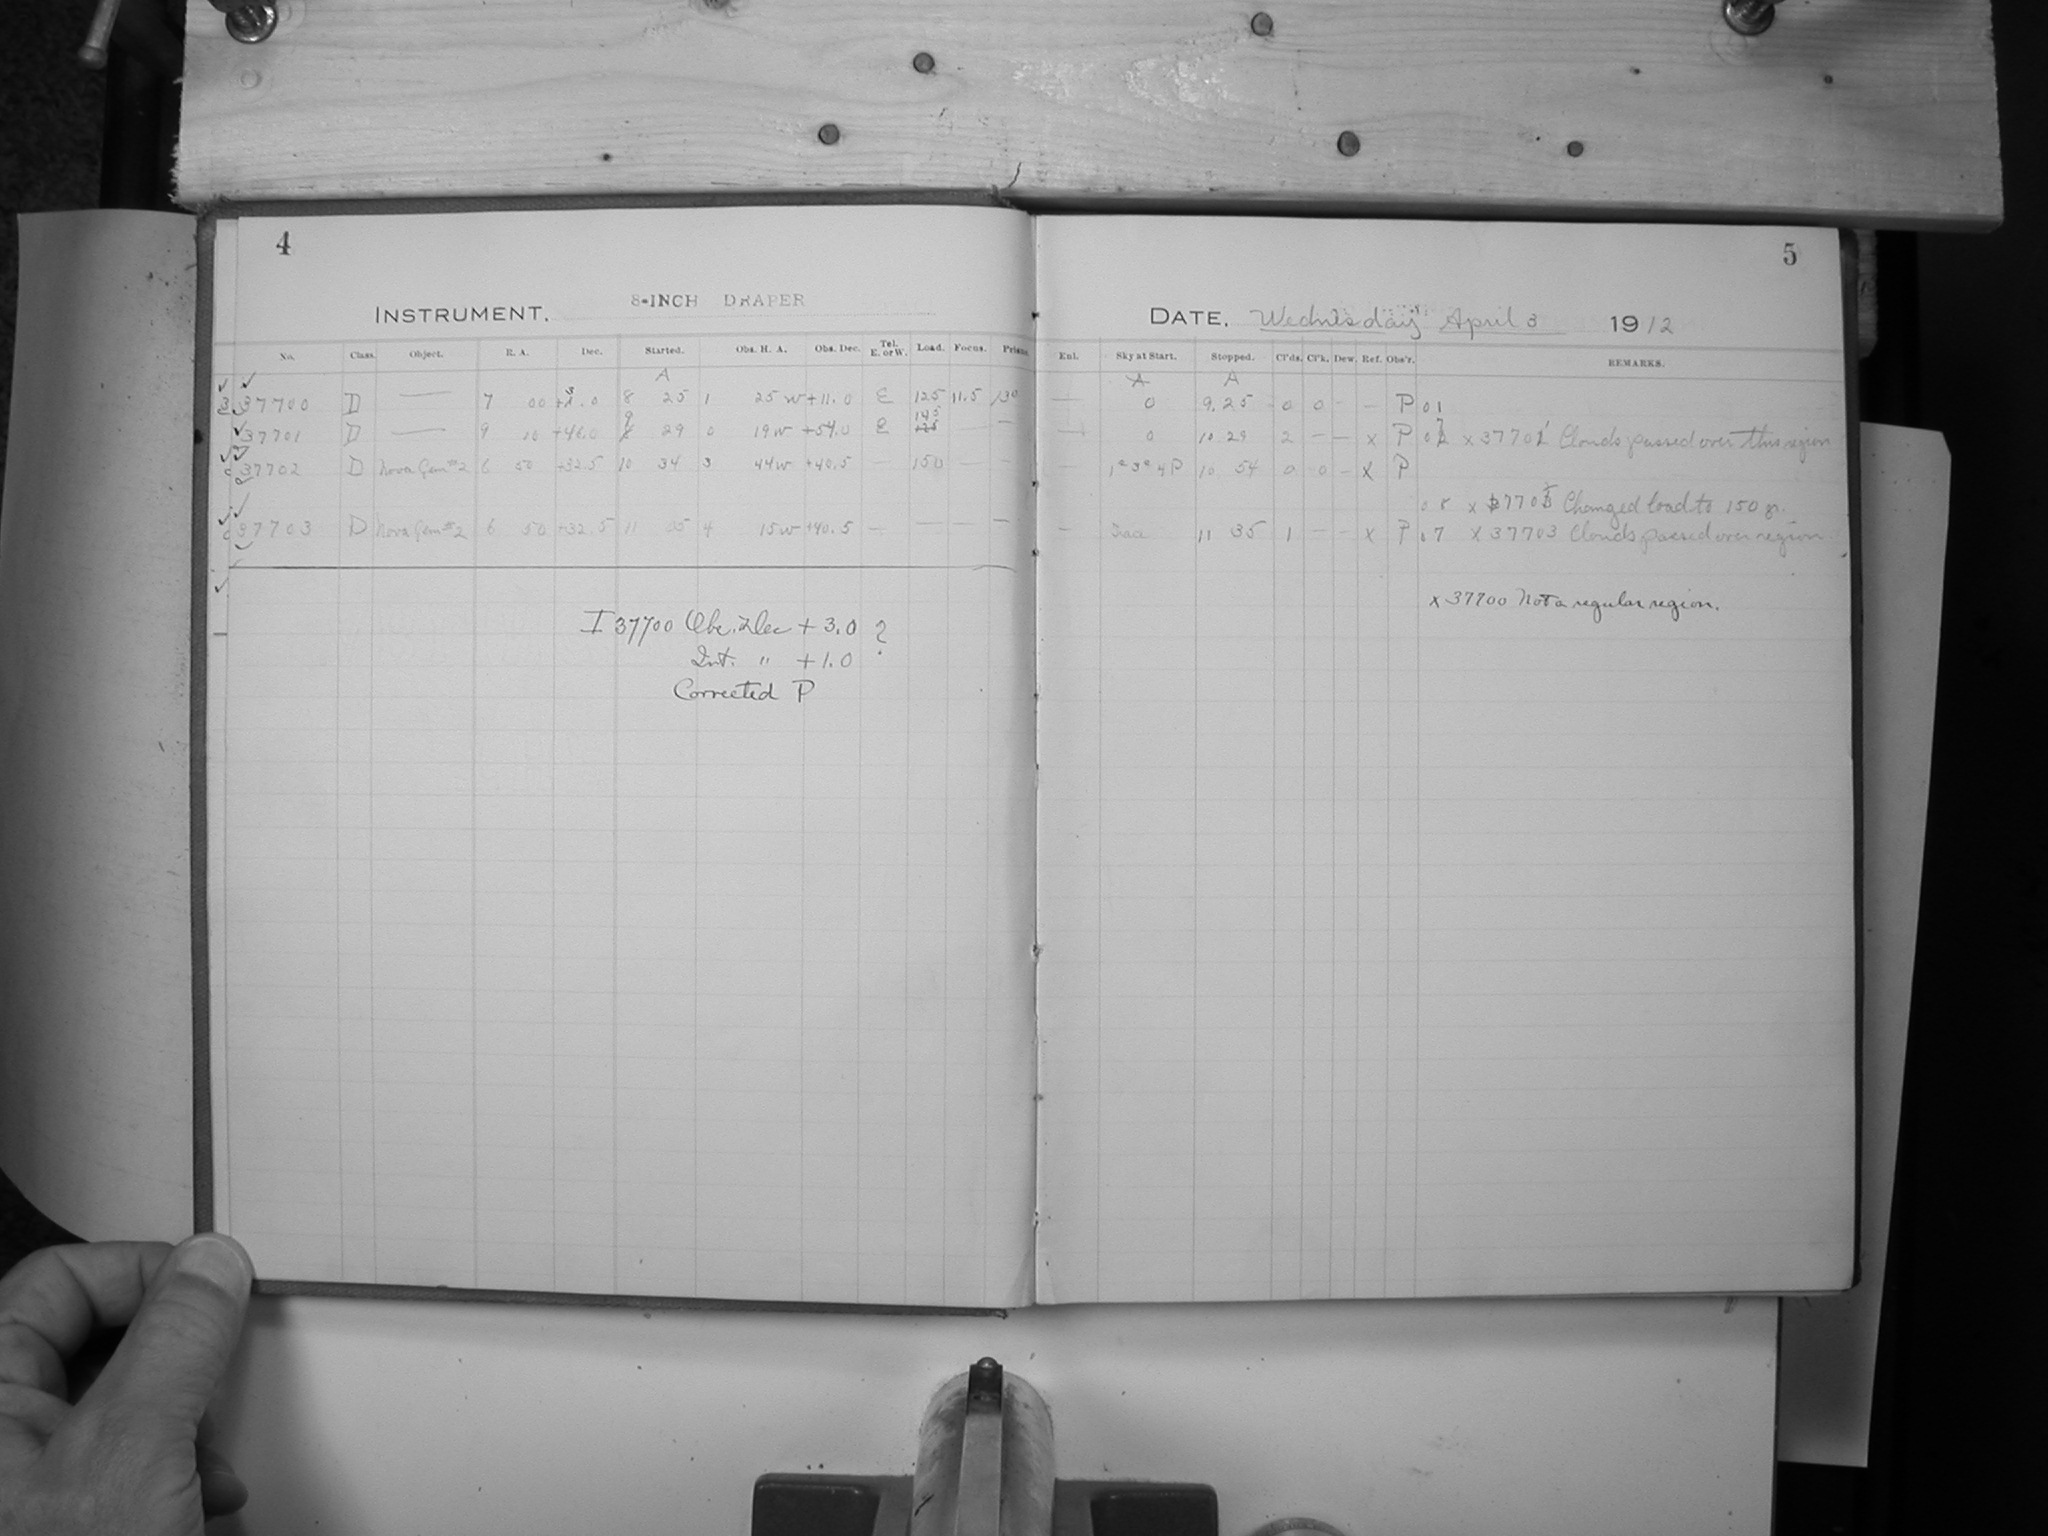 4
INSTRUMENT. 8-INCH DRAPER
No. Class. Object. R. A. Dec. Started. Obs. H. A. Obs. Dec. Tel. E. or W. Load. Focus. Prism.
A
37700 D — 7 00 +3.0 8 25 1 25 w +11.0 E 125 11.5 130
37701 D — 9 10 +46.0 9 29 0 19w +54.0 E 145 — —
37702 D Nova Gem #2 6 50 +32.5 10 34 3 44w +40.5 — 150 — —
37703 D Nova Gem #2 6 50 +32.5 11 05 4 15w +40.5 — — — —
I 37700 Obs. Dec + 3.0 ?
Int. " + 1.0
Corrected P
5
DATE. Wednesday April 3 1912
Enl. Sky at Start. Stopped. Cl'ds. Cl'k. Dew. Ref. Obs'r. REMARKS.
A A
— 0 9.25 0 0 - - P 01
— 0 10.29 2 — — x P x 37701 Clouds passed over this region
— 10 54 0 0 - x P
x 37703 Changed load to 150 gr.
— Trace 11 35 1 — — x P .7 x 37703 Clouds passed over region
x 37700 Not a regular region.